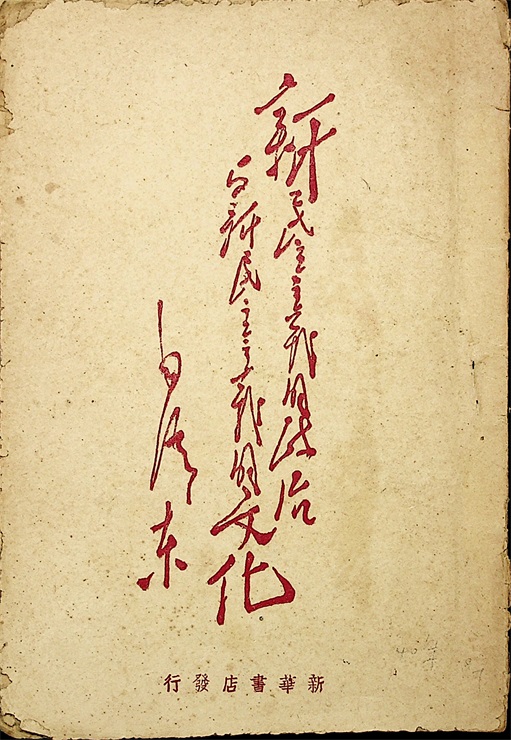 新民主主義的政治
与新民主主義的文化
毛澤东
新華書店發行